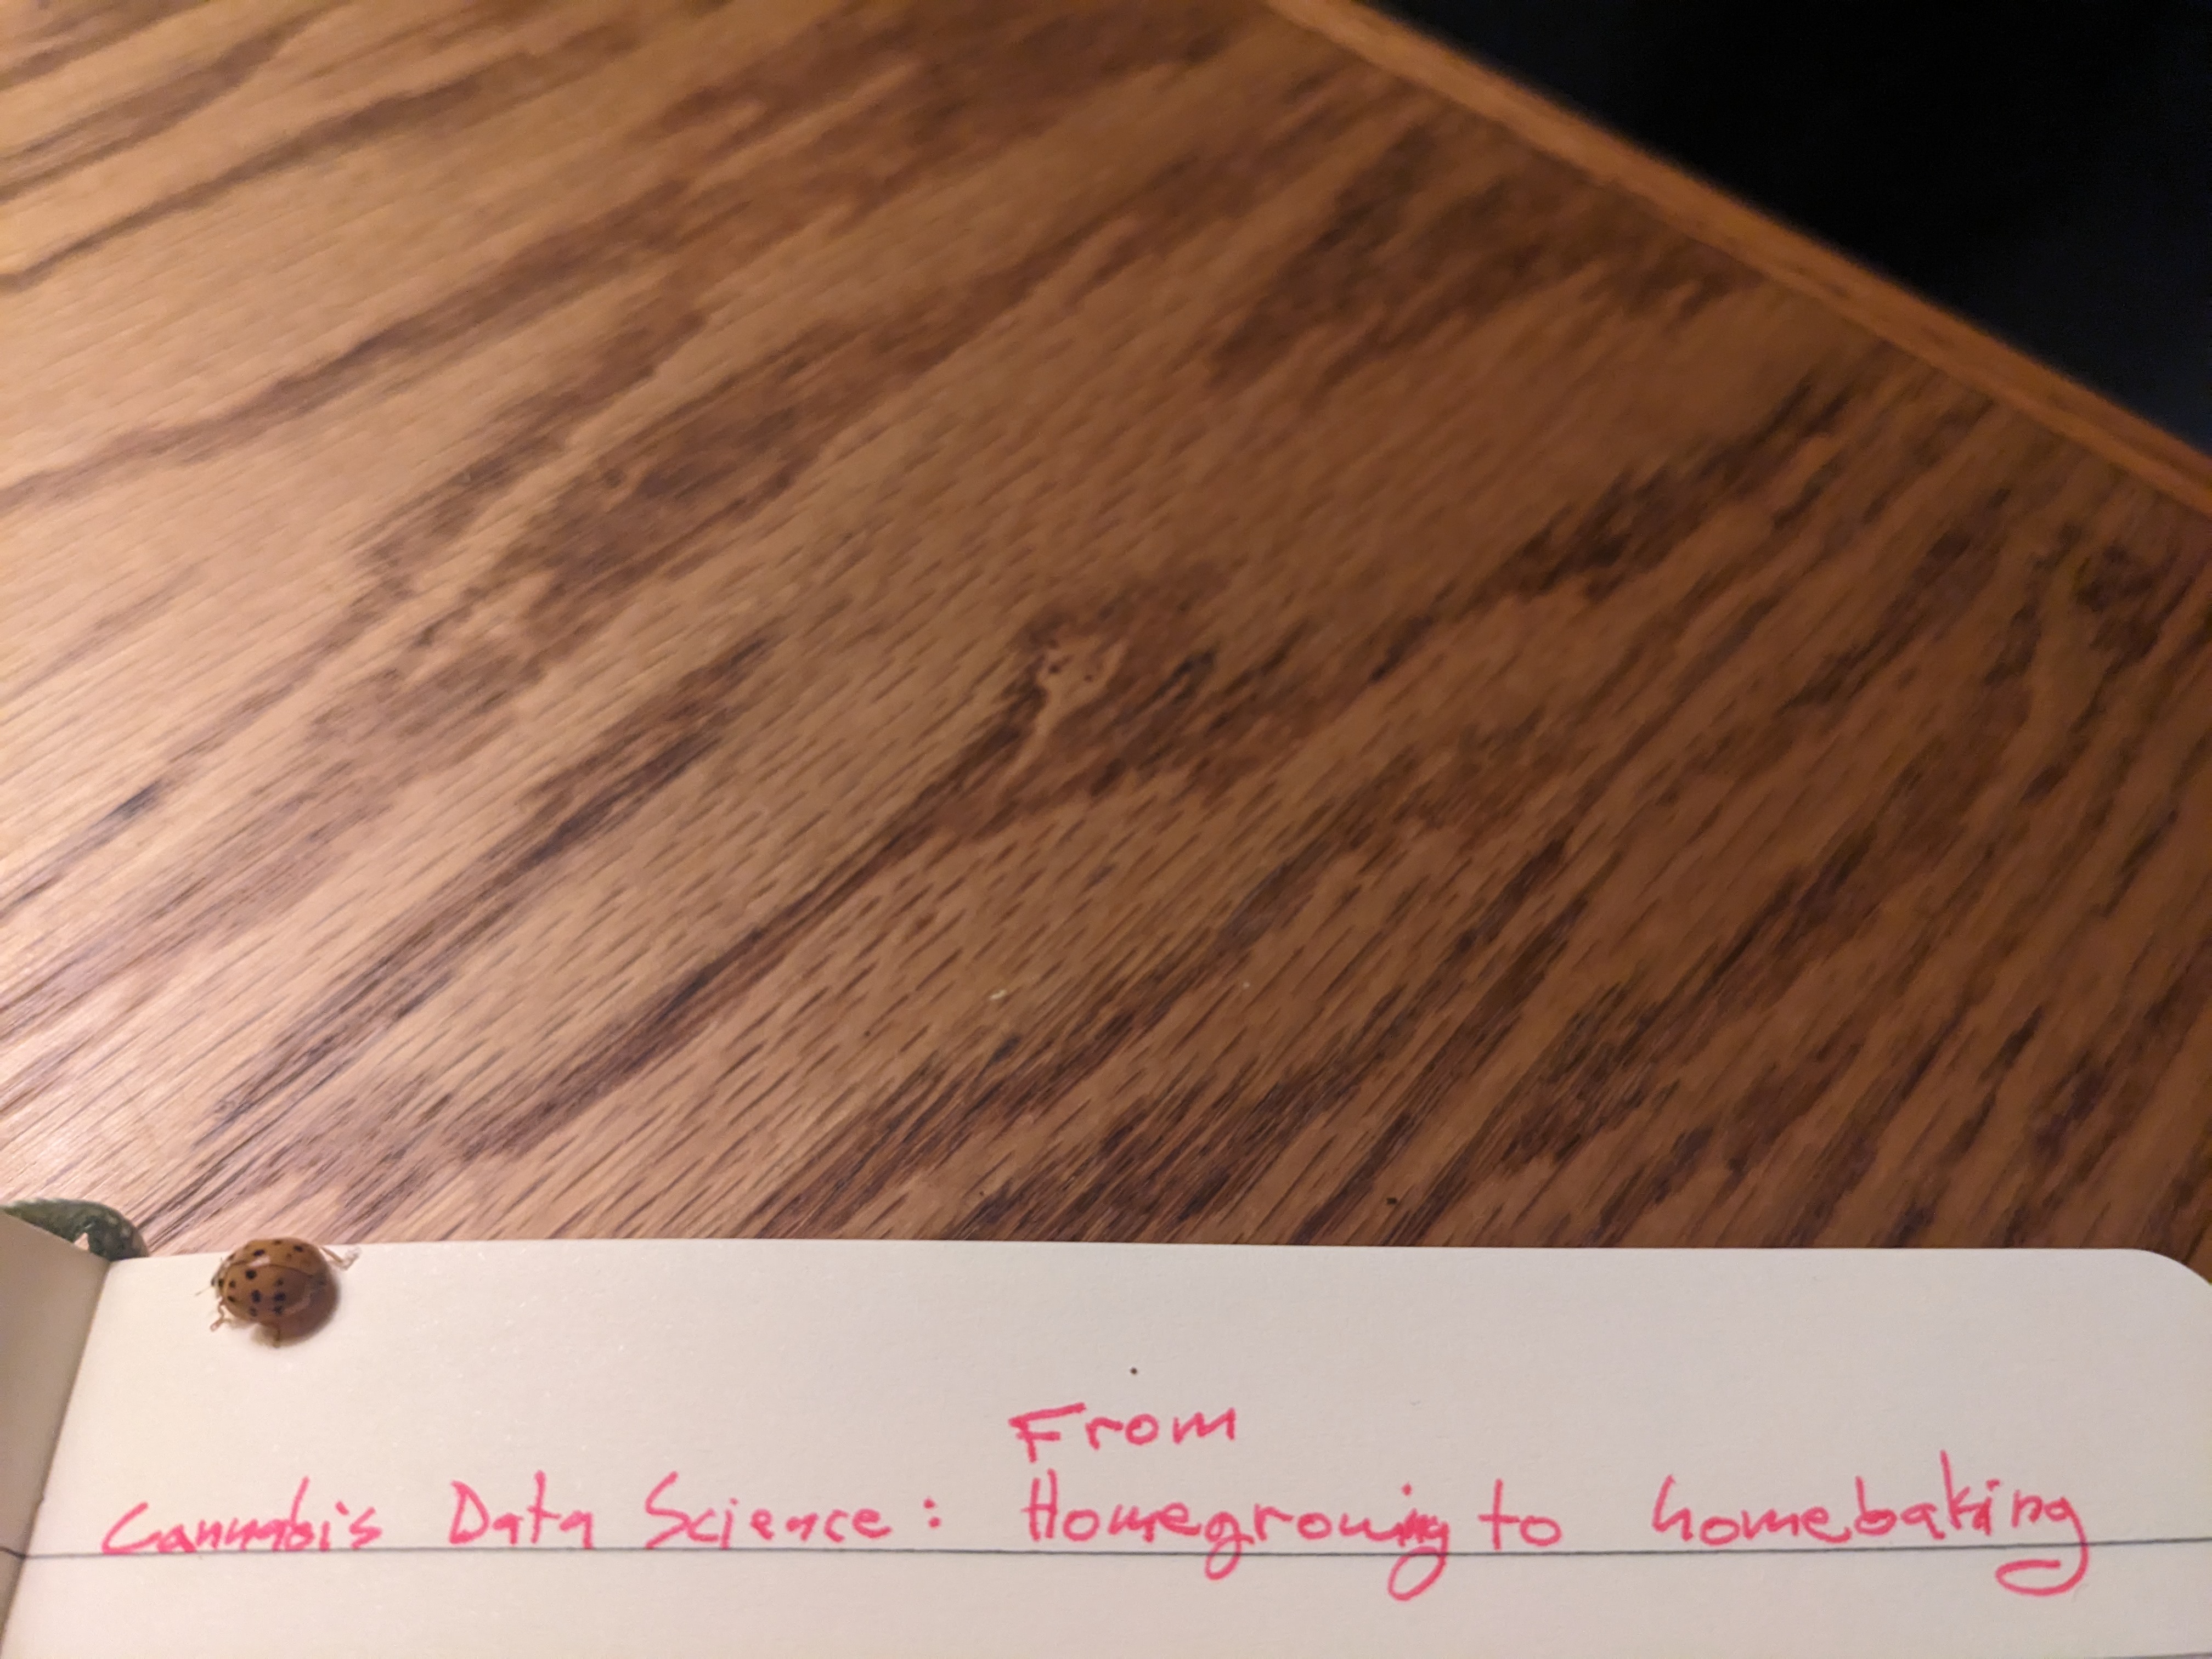 From
Cannabis Data Science: Homegrowing to homebaking